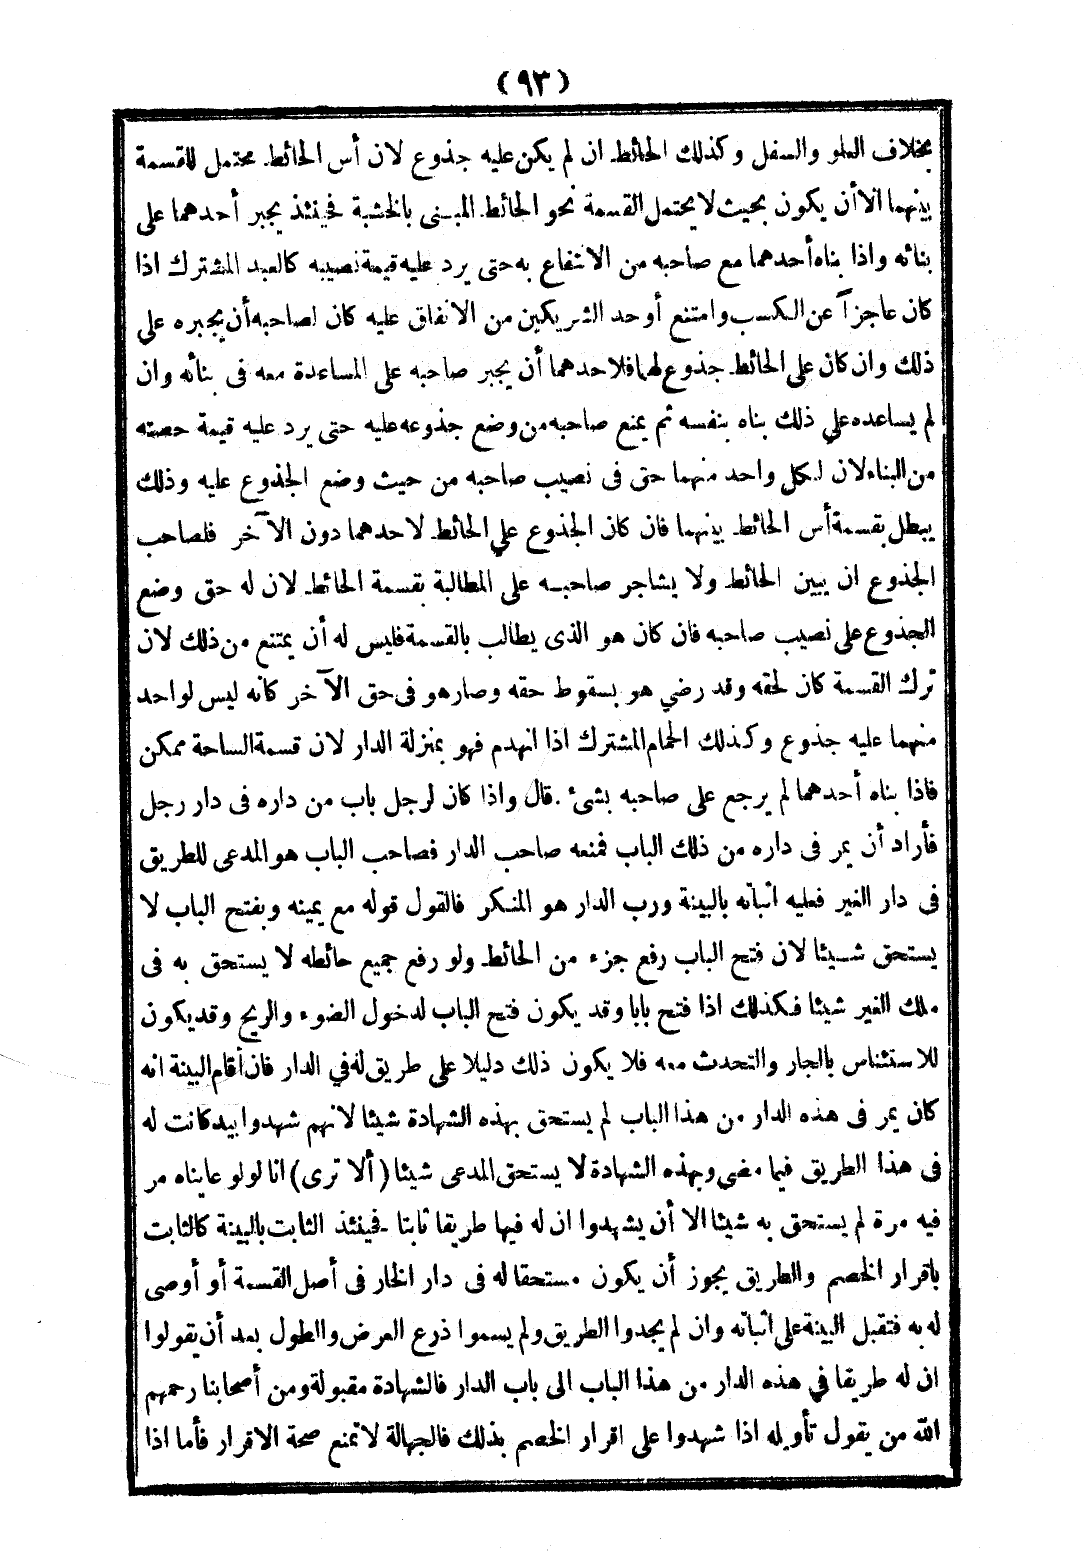 (٩٣)
بخلاف العلو والسفل وكذلك الحائط ان لم يكن عليه جذوع لان أس الحائط محتمل للقسمة
بينهما الا أن يكون بحيث لا يحتمل القسمة نحو الحائط المبنى بالخشبة فحينئذ يجبر أحدهما على
بنائه واذا بناه أحدهما مع صاحبه من الانتفاع به حتى يرد عليه قيمة نصيبه كالعبد المشترك اذا
كان عاجزاً عن الكسب وامتنع أوحد الشريكين من الانفاق عليه كان لصاحبه أن يجبره على
ذلك وان كان على الحائط جذوع لهما فلاحدهما أن يجبر صاحبه على المساعدة معه فى بنائه وان
لم يساعده على ذلك بناه بنفسه ثم يمنع صاحبه من وضع جذوعه عليه حتى يرد عليه قيمة حصته
من البناء لان لكل واحد منهما حق فى نصيب صاحبه من حيث وضع الجذوع عليه وذلك
يبطل بقسمة أس الحائط بينهما فان كان الجذوع على الحائط لاحدهما دون الآخر فلصاحب
الجذوع ان يبين الحائط ولا يشاجر صاحبه على المطالبة بقسمة الحائط لان له حق وضع
الجذوع على نصيب صاحبه فان كان هو الذى يطالب بالقسمة فليس له أن يمتنع من ذلك لان
ترك القسمة كان لحقه وقد رضي هو بسقوط حقه وصار هو فى حق الآخر كانه ليس لواحد
منهما عليه جذوع وكذلك الحمام المشترك اذا انهدم فهو بمنزلة الدار لان قسمة الساحة ممكن
فاذا بناه أحدهما لم يرجع على صاحبه بشئ . قال واذا كان لرجل باب من داره فى دار رجل
فأراد أن يمر فى داره من ذلك الباب فمنعه صاحب الدار فصاحب الباب هو المدعى للطريق
فى دار الغير فعليه اثباته بالبينة ورب الدار هو المنكر فالقول قوله مع يمينه وبفتح الباب لا
يستحق شيئا لان فتح الباب رفع جزء من الحائط ولو رفع جميع حائطه لا يستحق به فى
ملك الغير شيئا فكذلك اذا فتح بابا وقد يكون فتح الباب لدخول الضوء والريح وقد يكون
للاستئناس بالجار والتحدث معه فلا يكون ذلك دليلا على طريق له في الدار فان أقام البينة انه
كان يمر فى هذه الدار من هذا الباب لم يستحق بهذه الشهادة شيئا لانهم شهدوا بيد كانت له
فى هذا الطريق فيما مضى وبهذه الشهادة لا يستحق المدعى شيئا (ألا ترى) انا لو لو عايناه مر
فيه مرة لم يستحق به شيئا الا أن يشهدوا ان له فيها طريقا ثابتا . فحينئذ الثابت بالبينة كالثابت
باقرار الخصم والطريق يجوز أن يكون مستحقا له فى دار الخار فى أصل القسمة أو أوصى
له به فتقبل البينة على اثباته وان لم يجدوا الطريق ولم يسموا ذرع العرض والطول بعد أن يقولوا
ان له طريقا في هذه الدار من هذا الباب الى باب الدار فالشهادة مقبولة ومن أصحابنا رحمهم
الله من يقول تأويله اذا شهدوا على اقرار الخصم بذلك فالجهالة لا تمنع صحة الاقرار فأما اذا